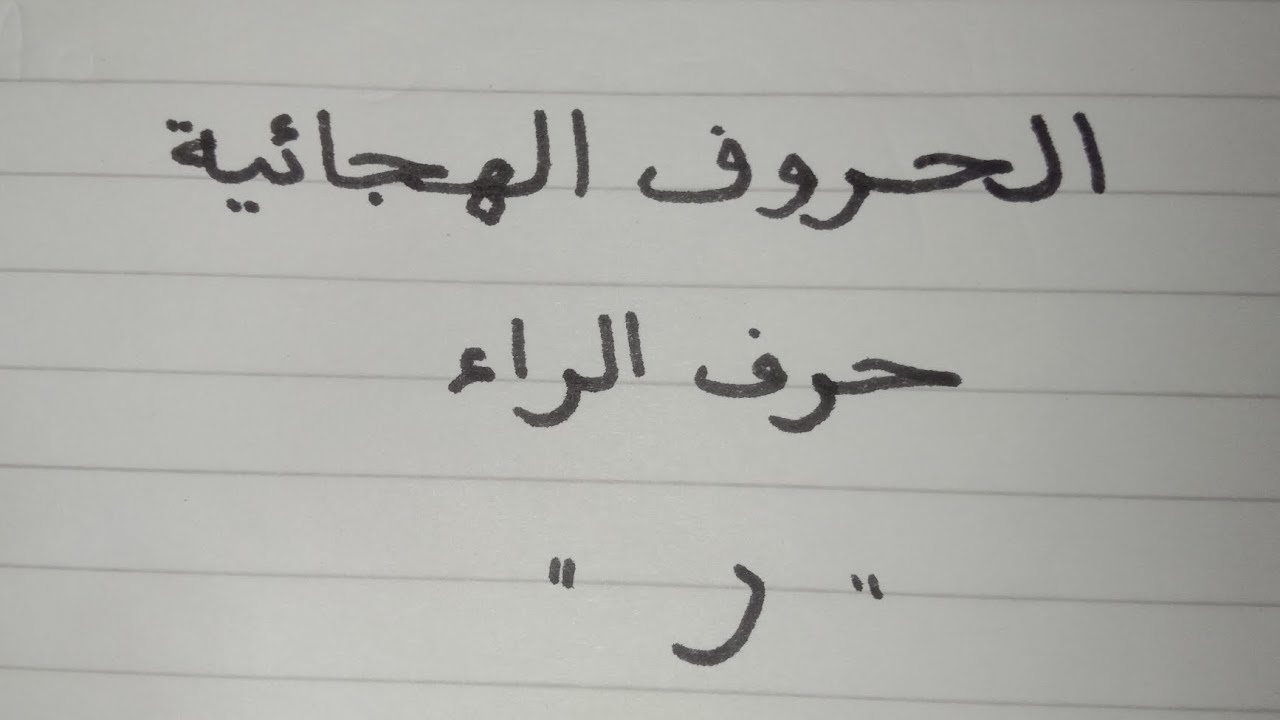 الحروف الهجائية
حرف الراء
" ر "